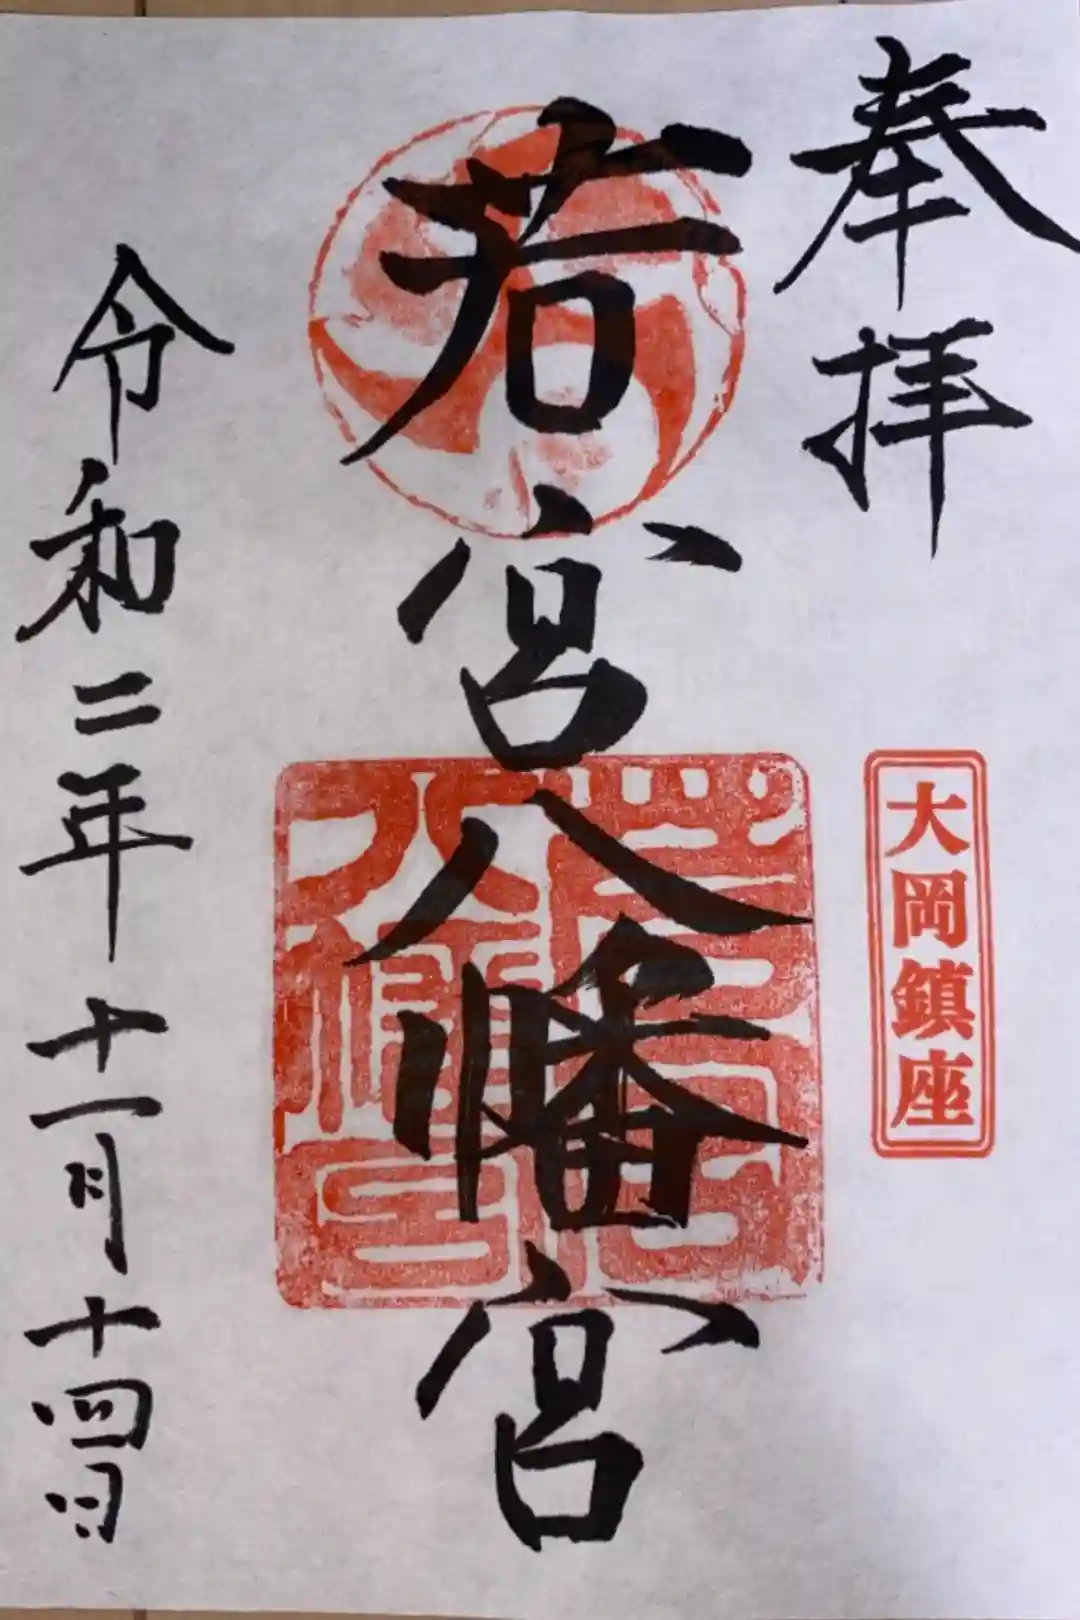 奉拝
大岡鎮座
若宮八幡宮
令和二年十一月十四日